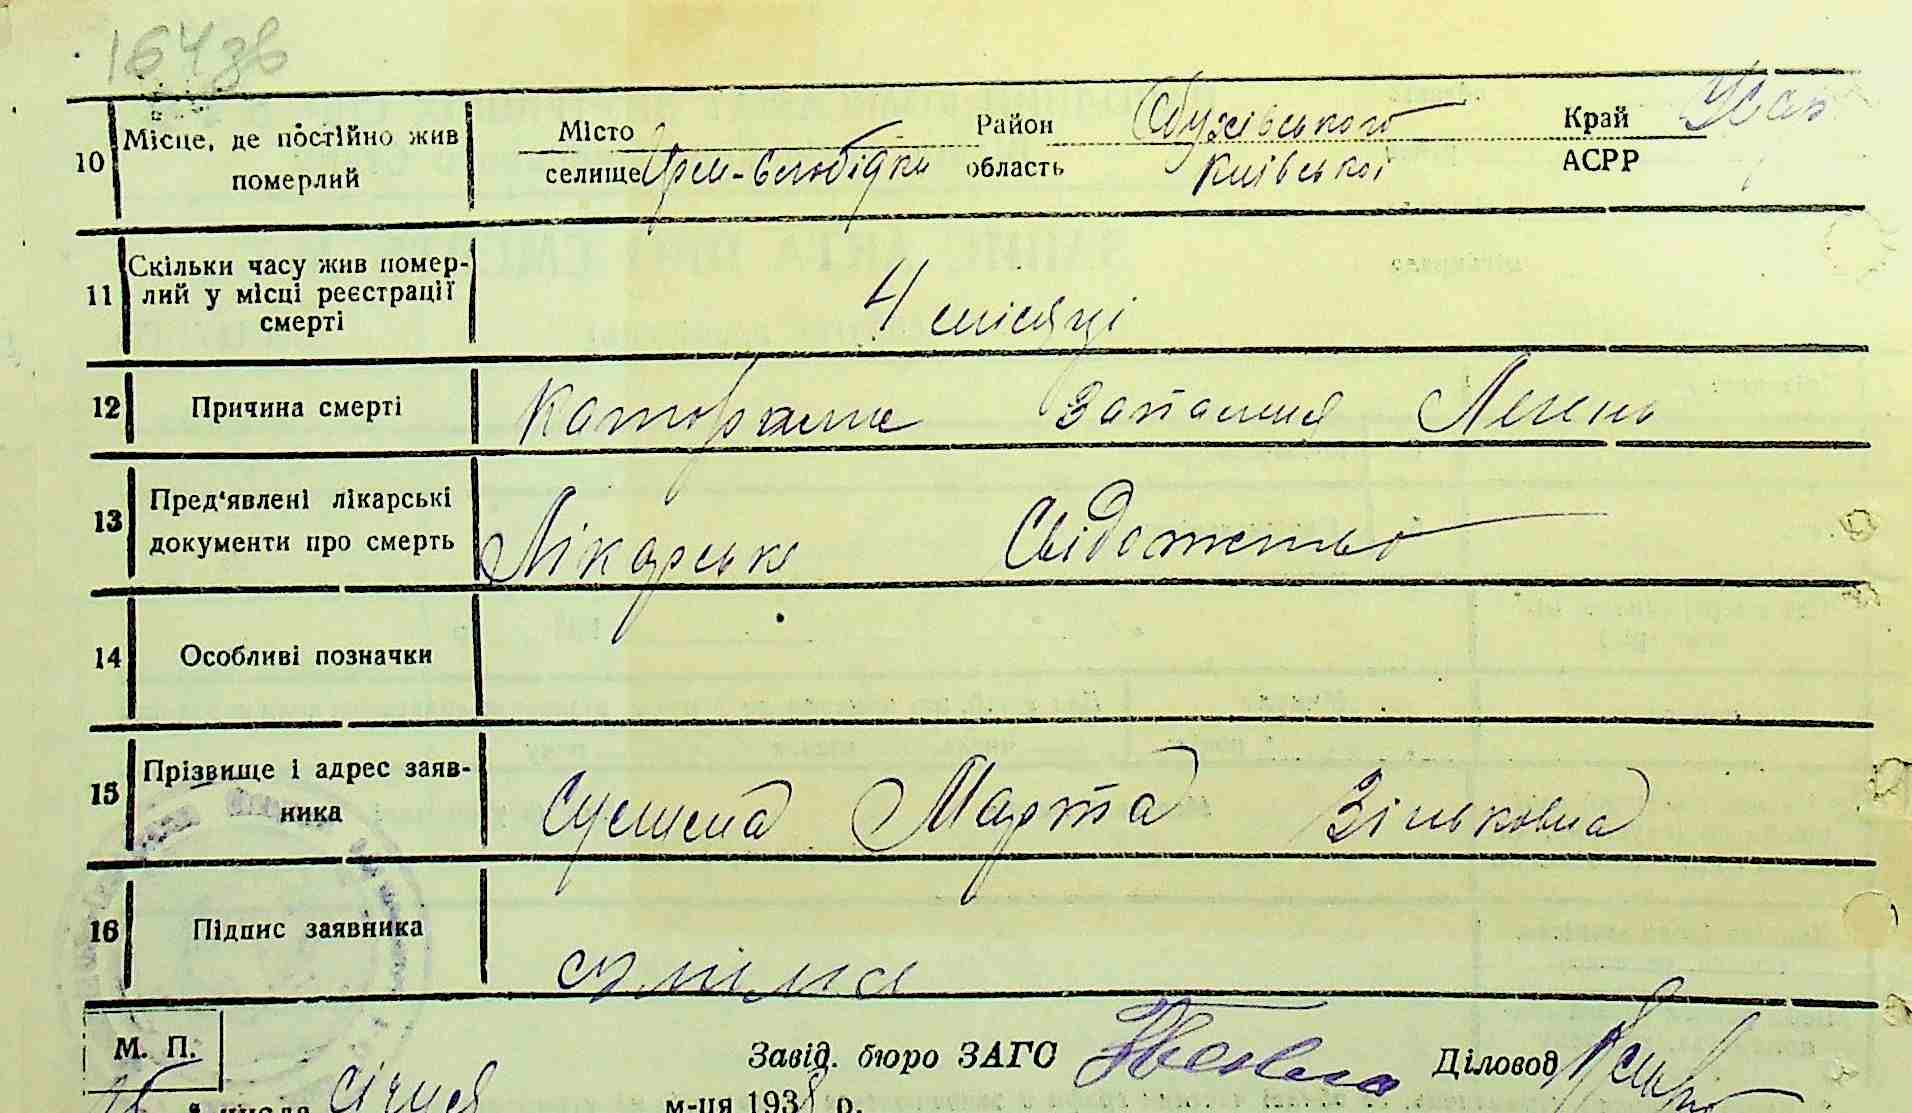 164зв
10 Місце, де постійно жив померлий
Місто
селище
Район Обухівського
область Київської
Край
АСРР
11 Скільки часу жив помер-
лий у місці реєстрації
смерті
4 місяці
12 Причина смерті
Запалення Легень
13 Пред'явлені лікарські
документи про смерть
Лікарське Свідоцтво
14 Особливі позначки
15 Прізвище і адрес заяв-
ника
Марта Зіньковна
16 Підпис заявника
М. П.
Завід. бюро ЗАГС
Діловод
числа січня м-ця 1938 р.